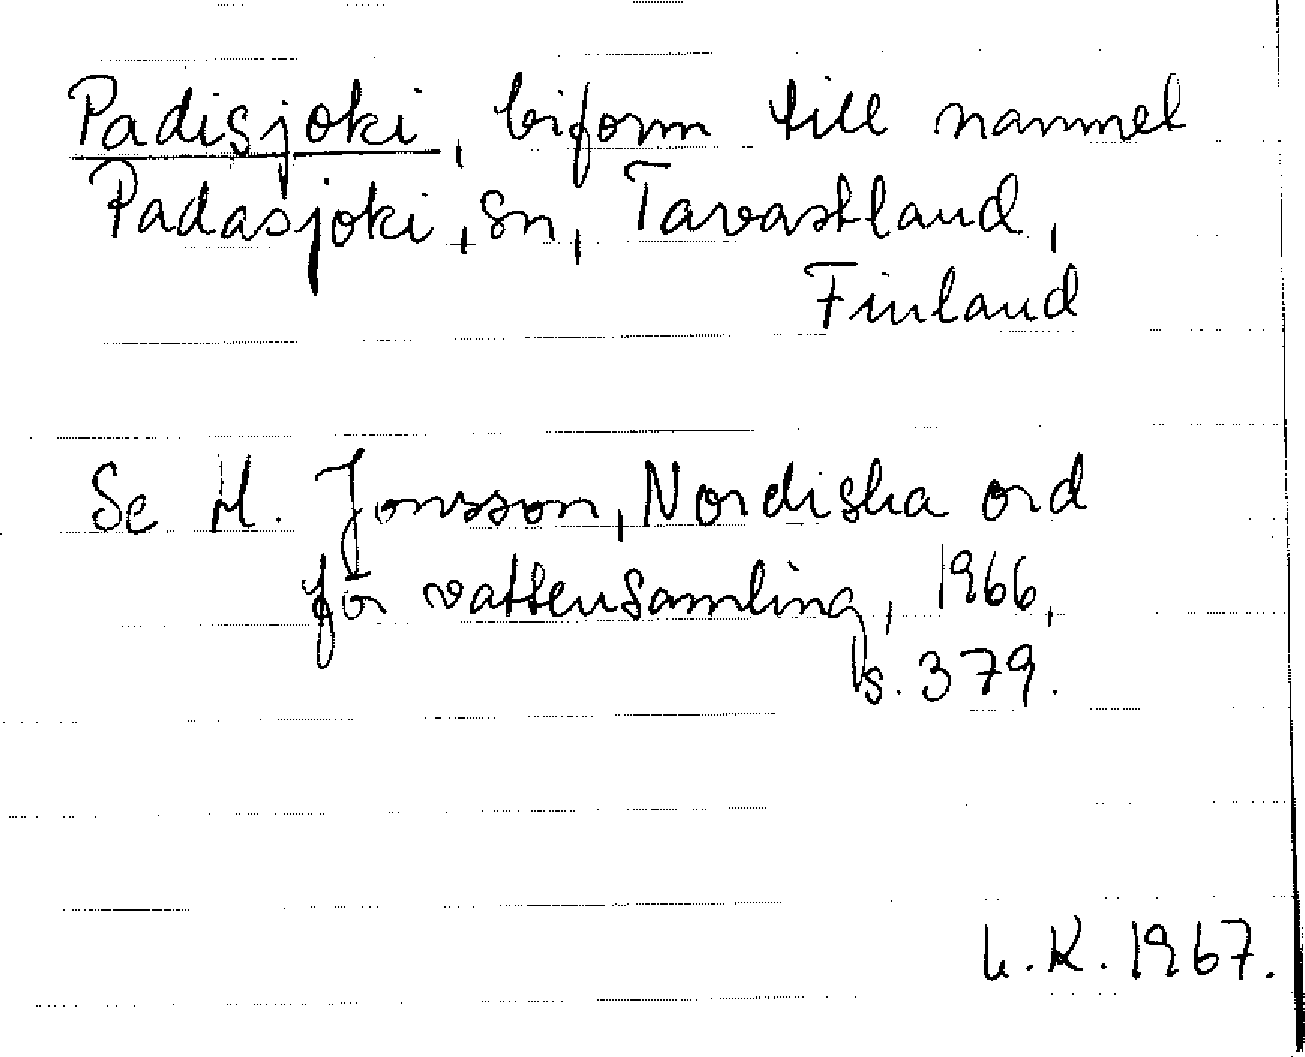 Padisjoki, biform till namnet
Padasjoki, sn, Tavastland,
Finland
Se H. Jonsson, Nordiska ord
för vattensamling, 1966,
s. 379.
L.K. 1967.